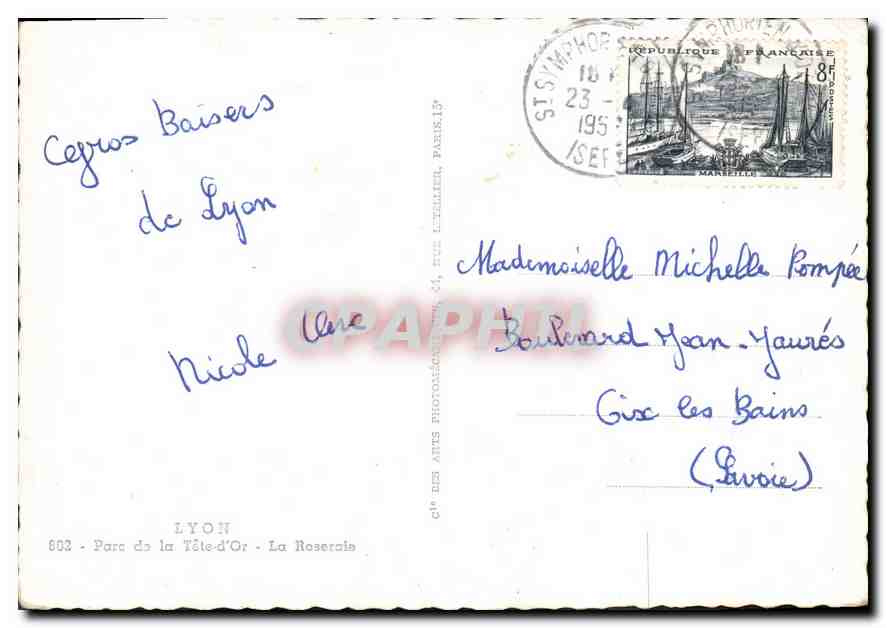 Gros Baisers
de Lyon
Nicole
LYON
802 - Parc de la Tête-d'Or - La Roseraie
Cie DES ARTS PHOTOMÉCANIQUES, 44, RUE LETELLIER, PARIS-15e
ST SYMPHOR
18
23 -
195
ISER
SYMPHORIEN
ISER
RÉPUBLIQUE FRANÇAISE
8F
POSTES
MARSEILLE
Mademoiselle Michelle Pompée
Boulevard Jean-Jaurés
Aix les Bains
(Savoie)
CPAPHIL